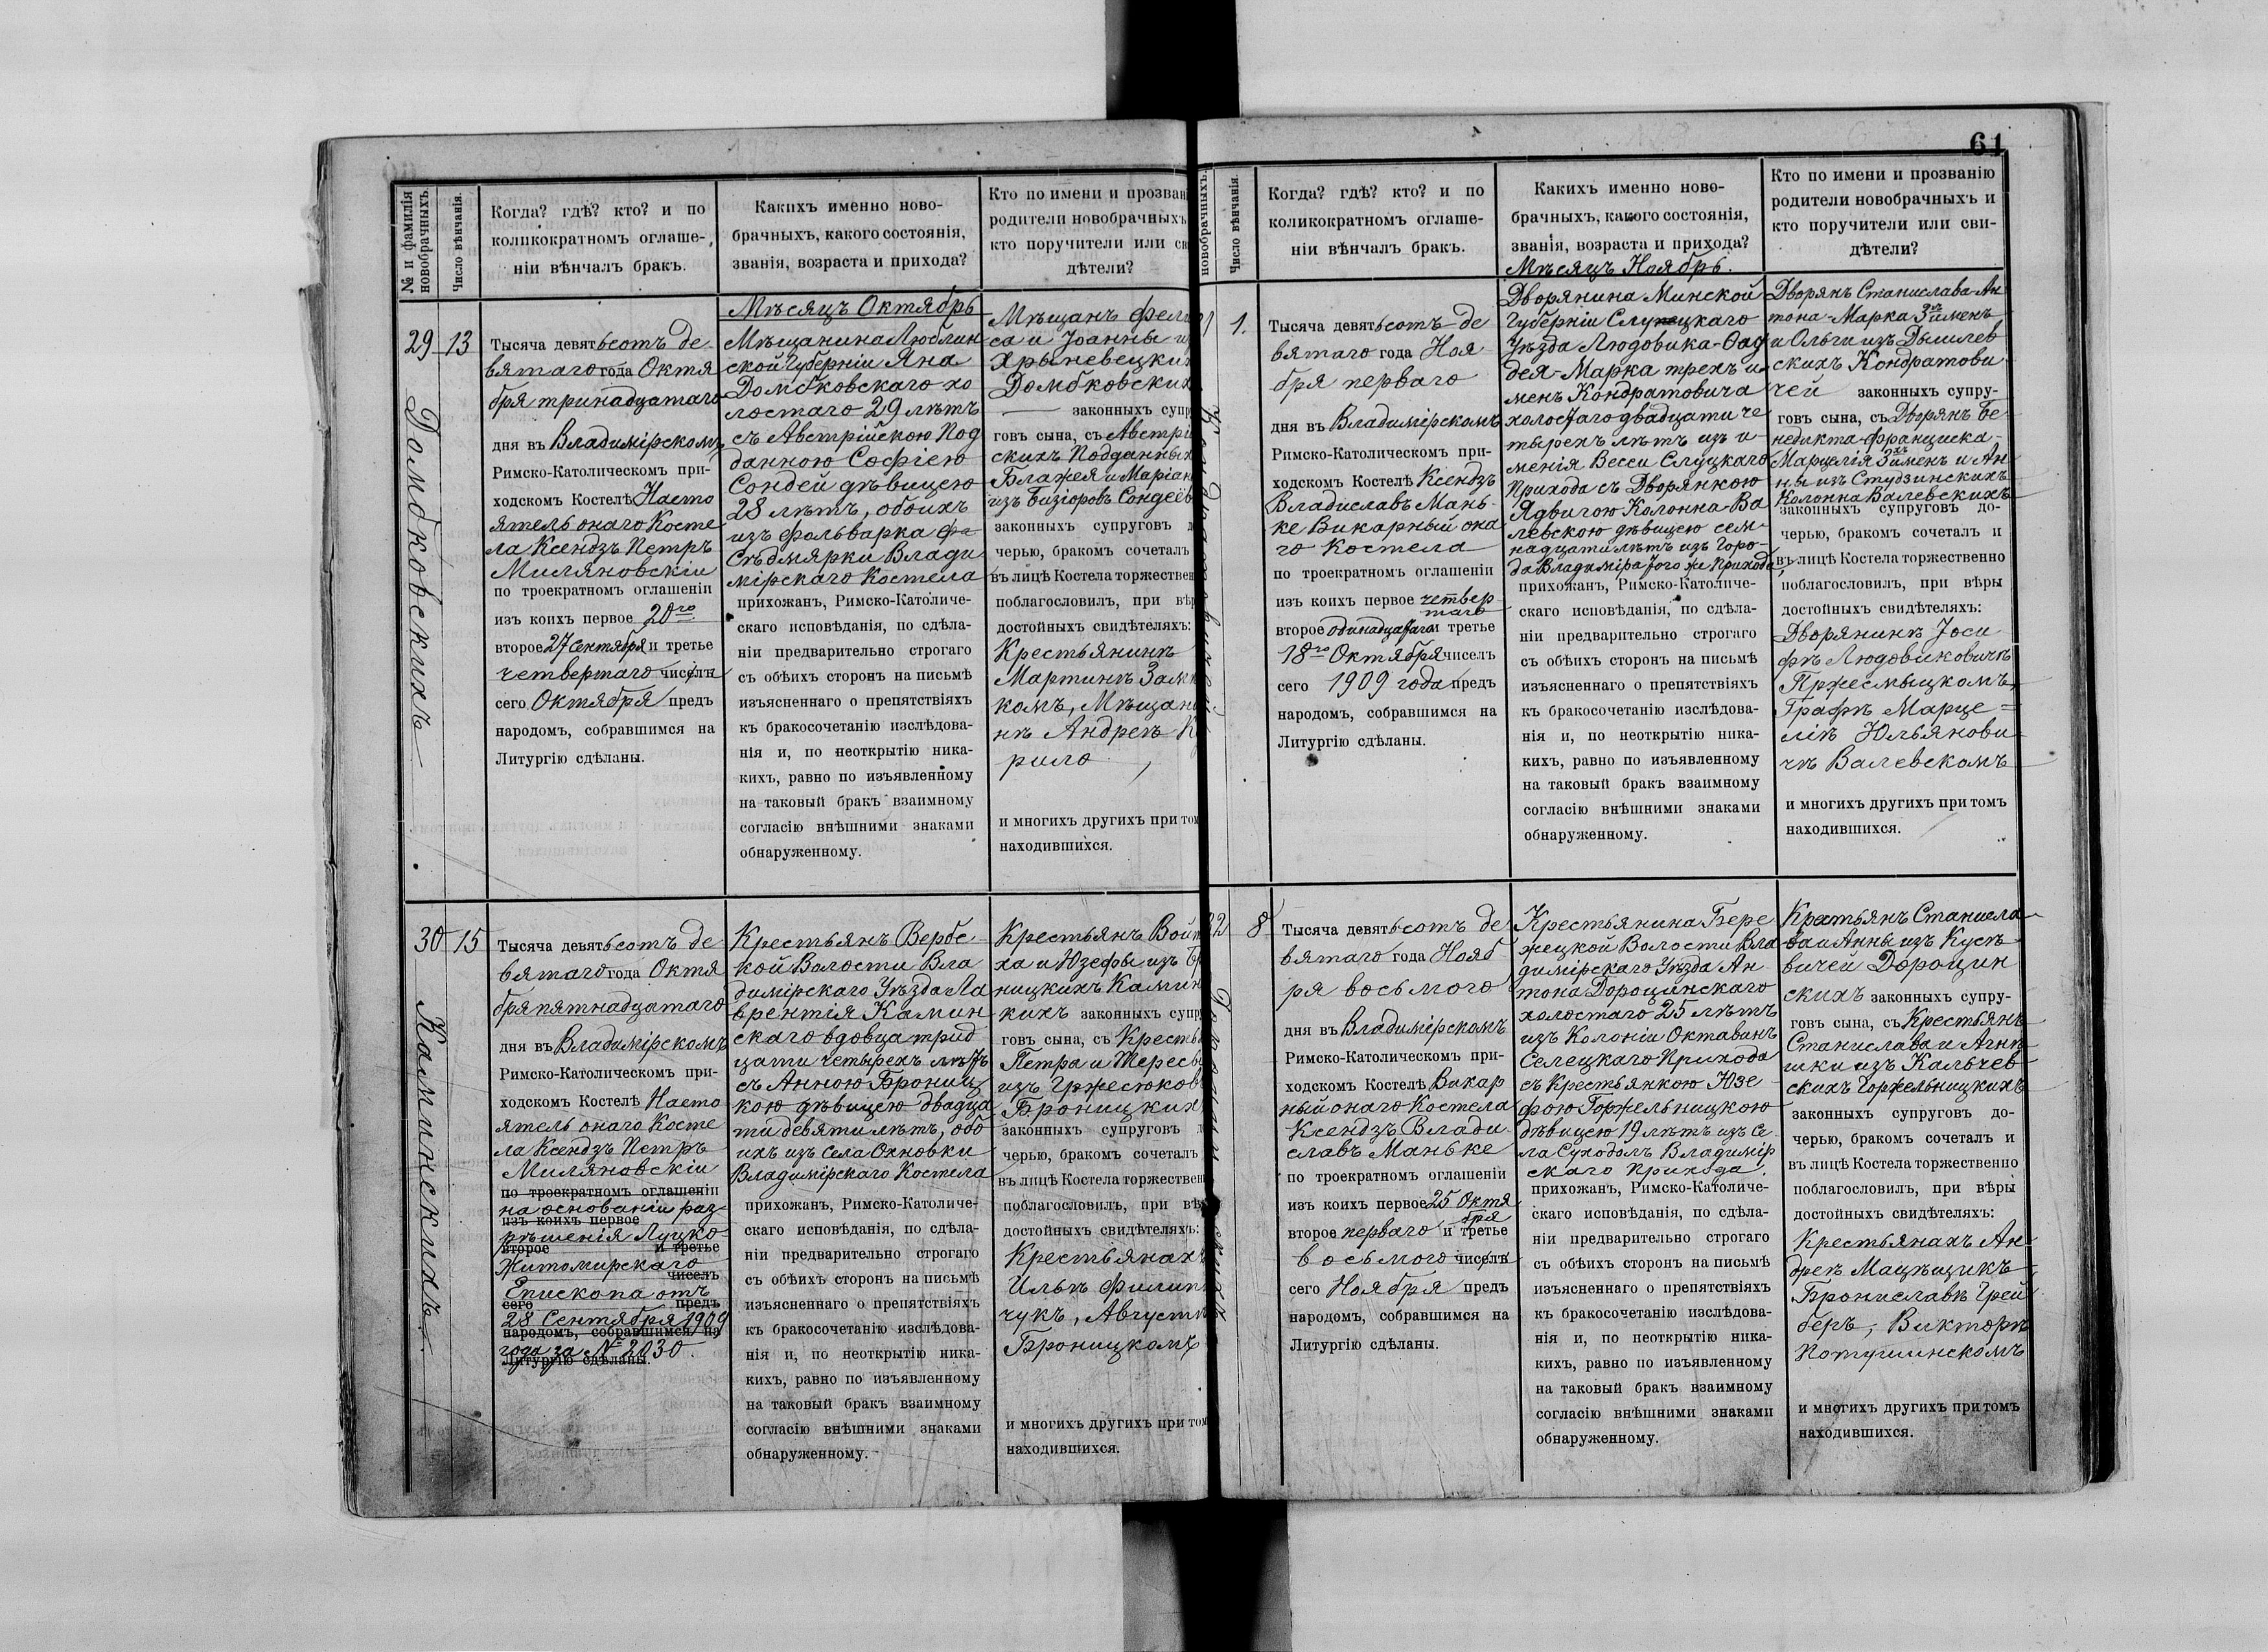 № и фамилія новобрачныхъ.
Число вѣнчанія.
Когда? гдѣ? кто? и по
коликократномъ оглаше-
ніи вѣнчалъ бракъ.
Какихъ именно ново-
брачныхъ, какого состоянія,
званія, возраста и прихода?
Кто по имени и прозван
родители новобрачныхъ
кто поручители или св
дѣтели?
29
13
Домбковскихъ
Тысяча девятьсотъ де-
вятаго года Октя
бря тринадцатаго
дня въ Владимірскомъ
Римско-Католическомъ при-
ходскомъ Костелѣ Насто
ятель онаго Косте
ла Ксендзъ Петръ
Миляновскіи
по троекратномъ оглашеніи
изъ коихъ первое 20го
второе 27 Сентября и третье
четвертаго чиселъ
сего Октября предъ
народомъ, собравшимся на
Литургію сдѣланы.
Мѣсяцъ Октябрь
Мѣщанина Люблин
ской Губерніи Яна
Домбковскаго хо
лостаго 29 лѣтъ
съ Австрійскою Под
данною Софіею
Сондей дѣвицею
28 лѣтъ, обоихъ
изъ фольварка
Сѣдмярки Влади
мірскаго Костела
прихожанъ, Римско-Католиче-
скаго исповѣданія, по сдѣла-
ніи предварительно строгаго
съ обѣихъ сторонъ на письмѣ
изъясненнаго о препятствіяхъ
къ бракосочетанію изслѣдова-
нія и, по неоткрытію ника-
кихъ, равно по изъявленному
на таковый бракъ взаимному
согласію внѣшними знаками
обнаруженному.
Мѣщанъ Фели
са и Іоанны и
Хрыневецких
Домбковских
законныхъ супр
говъ сына, съ Австрі
скихъ Подданных
Блажея и Маріан
изъ Бизіоровъ Сондеёв
законныхъ супруговъ д
черью, бракомъ сочеталъ
въ лицѣ Костела торжествен
поблагословилъ, при вѣр
достойныхъ свидѣтеляхъ:
Крестьянинѣ
Мартинѣ Замк
комъ, Мѣщани
нѣ Андреѣ К
рило
и многихъ другихъ при том
находившихся.
30
15
Каминскихъ
Тысяча девятьсотъ де
вятаго года Октя
бря пятнадцатаго
дня въ Владимірскомъ
Римско-Католическомъ при-
ходскомъ Костелѣ Насто
ятель онаго Косте
ла Ксендзъ Петръ
Миляновскіи
по троекратномъ оглашеніи
на основаніи раз-
изъ коихъ первое
рѣшенія Луцко
второе и третье
Житомирскаго
чиселъ
Епископа отъ
сего предъ
28 Сентября 1909
народомъ, собравшимся на
года за № 2030.
Литургію сдѣланы.
Крестьянъ Вербс-
кой Волости Вла
димірскаго Уѣзда Ла
врентія Камин
скаго вдовца трид
цати четырехъ лѣтъ
съ Анною Брониц
кою дѣвицею двадца
ти девяти лѣтъ, обо
ихъ изъ села Охновки
Владимірскаго Костела
прихожанъ, Римско-Католиче-
скаго исповѣданія, по сдѣла-
ніи предварительно строгаго
съ обѣихъ сторонъ на письмѣ
изъясненнаго о препятствіяхъ
къ бракосочетанію изслѣдова-
нія и, по неоткрытію ника-
кихъ, равно по изъявленному
на таковый бракъ взаимному
согласію внѣшними знаками
обнаруженному.
Крестьянъ Войт
ха и Юзефы изъ
ницкихъ Камин
кихъ законныхъ супр
говъ сына, съ Кресть
Петра и Тересы
изъ Гржесюков
Броницких
законныхъ супруговъ д
черью, бракомъ сочеталъ
въ лицѣ Костела торжествен
поблагословилъ, при вѣ
достойныхъ свидѣтеляхъ:
Крестьянах
Ильѣ Филип
чукъ, Августи
Броницкомъ
и многихъ другихъ при том
находившихся.
61
новобрачныхъ.
Число вѣнчанія.
Когда? гдѣ? кто? и по
коликократномъ оглаше-
ніи вѣнчалъ бракъ.
Какихъ именно ново-
брачныхъ, какого состоянія,
званія, возраста и прихода?
Мѣсяцъ Ноябрь.
Кто по имени и прозванію
родители новобрачныхъ и
кто поручители или сви-
дѣтели?
1.
Тысяча девятьсотъ де
вятаго года Ноя
бря перваго
дня въ Владимірскомъ
Римско-Католическомъ при-
ходскомъ Костелѣ Ксендзъ
Владиславъ Мань-
ке Викарный она
го Костела
по троекратномъ оглашеніи
изъ коихъ первое четвер
таго
второе одинадцатаго и третье
18го Октября чиселъ
сего 1909 года предъ
народомъ, собравшимся на
Литургію сдѣланы.
Дворянина Минской
Губерніи Слуцкаго
Уѣзда Людовика-Фад
дея-Марка трехъ и-
менъ Кондратовича
холостаго двадцати че
тырехъ лѣтъ изъ и-
менія Весси Слуцкаго
Прихода съ Дворянкою
Ядвигою Колонна-Ва
левскою дѣвицею сем-
надцати лѣтъ изъ Горо-
да Владиміра того же Прихода
прихожанъ, Римско-Католиче-
скаго исповѣданія, по сдѣла-
ніи предварительно строгаго
съ обѣихъ сторонъ на письмѣ
изъясненнаго о препятствіяхъ
къ бракосочетанію изслѣдова-
нія и, по неоткрытію ника-
кихъ, равно по изъявленному
на таковый бракъ взаимному
согласію внѣшними знаками
обнаруженному.
Дворянъ Станислава-Ан
тона-Марка 3хъ именъ
и Ольги изъ Дышлев
скихъ Кондратови
чей законныхъ супру-
говъ сына, съ Дворянъ Бе
недикта-Франциска-
Марцелія 3хъ именъ и Ан
ны изъ Студзинскихъ
Колонна Валевскихъ
законныхъ супруговъ до-
черью, бракомъ сочеталъ и
въ лицѣ Костела торжественно
поблагословилъ, при вѣры
достойныхъ свидѣтеляхъ:
Дворянинѣ Іоси
фѣ Людовиковичѣ
Пржесмыцкомъ,
Графѣ Марце=
ліѣ Юльянови
чѣ Валевскомъ
и многихъ другихъ при томъ
находившихся.
8
Тысяча девятьсотъ де
вятаго года Нояб
ря восьмого
дня въ Владимірскомъ
Римско-Католическомъ при-
ходскомъ Костелѣ Викар
ный онаго Костела
Ксендзъ Влади-
славъ Маньке
по троекратномъ оглашеніи
изъ коихъ первое 25 Октя
бря
второе перваго и третье
восьмого чиселъ
сего Ноября предъ
народомъ, собравшимся на
Литургію сдѣланы.
Крестьянина Бере
жецкой Волости Вла
димірскаго Уѣзда Ан-
тона Дорощинскаго
холостаго 25 лѣтъ
изъ Колоніи Октавинъ
Селецкаго Прихода
съ Крестьянкою Юзе-
фою Горжельницкою
дѣвицею 19 лѣтъ изъ Се-
ла Суходолъ Владимір
скаго Прихода.
прихожанъ, Римско-Католиче-
скаго исповѣданія, по сдѣла-
ніи предварительно строгаго
съ обѣихъ сторонъ на письмѣ
изъясненнаго о препятствіяхъ
къ бракосочетанію изслѣдова-
нія и, по неоткрытію ника-
кихъ, равно по изъявленному
на таковый бракъ взаимному
согласію внѣшними знаками
обнаруженному.
Крестьянъ Станисла
ва и Анны изъ Кусѣ
вичей Дорощин
скихъ законныхъ супру-
говъ сына, съ Крестьянъ
Станислава и Агнѣ
шки изъ Кальчев
скихъ Горжельницкихъ
законныхъ супруговъ до-
черью, бракомъ сочеталъ и
въ лицѣ Костела торжественно
поблагословилъ, при вѣры
достойныхъ свидѣтеляхъ:
Крестьянахъ Ан-
дреѣ Мацѣщикъ
Брониславѣ Грей
беръ, Викторѣ
Потушинскомъ
и многихъ другихъ при томъ
находившихся.